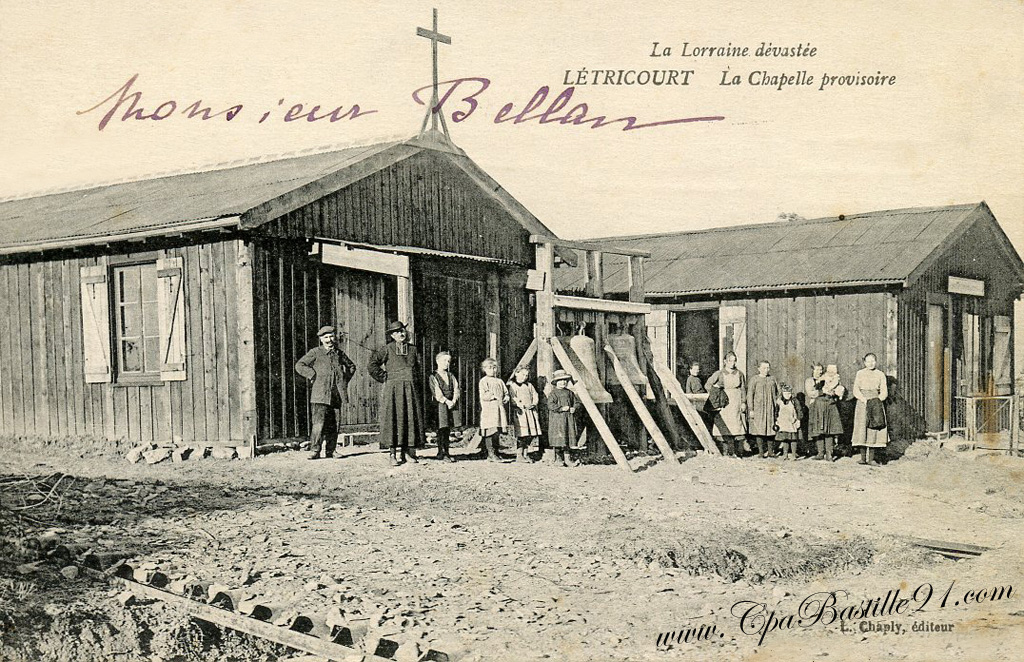 La Lorraine dévastée
LÉTRICOURT La Chapelle provisoire
Monsieur Bellan
www.CpaBastille91.com
L. Chaply, éditeur